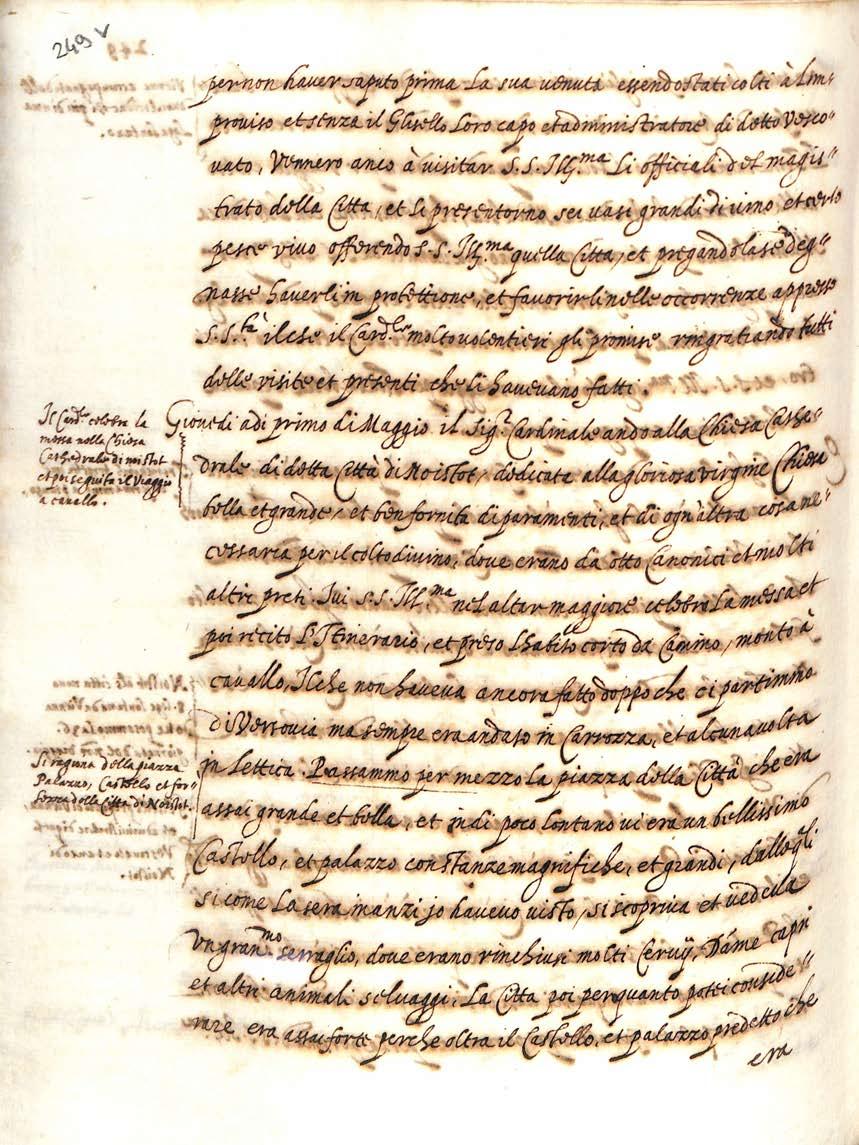 249 v
per non haver saputo prima la sua venuta essendo stati colti à l'im=
proviso et senza il Glisello Loro capo et administratore di detto Vesco=
vato, Vennero anco à visitar S. S. Ill.ma Li officiali del magis=
trato della Citta, et li presentorno sei vasi grandi di vino, et certo
pesce vivo offerendo S. S. Ill.ma quella Citta, et pregandola se deg=
nasse haverli in protettione, et favorirli nelle occorrenze appresso
S. S.tà il che il Card.le molto volentieri gli promise ringratiando tutti
delle visite et presenti che li havevano fatti.
Il Card.le celebra la
messa nella Chiesa
Cathedrale di noistot
et poi seguita il viaggio
a cavallo.
Giovedi adi primo di Maggio il Sig.r Cardinale ando alla Chiesa Cathe=
drale di detta Città di Noistot, dedicata alla gloriosa virgine Chiesa
bella et grande, et ben fornita di paramenti, et di ogn'altra cosa ne=
cessaria per il colto divino, dove erano da otto Canonici et molti
altri preti. Ivi S. S. Ill.ma nel altar maggiore celebro La messa et
poi recito L'Itinerario, et preso L'habito corto da Camino, monto à
cavallo, Il che non haveva ancora fatto doppo che ci partimmo
di Versovia ma sempre era andato in Carrozza, et alcuna volta
in Lettica. Passammo per mezzo la piazza della Città che era
Si ragiona della piazza
Palazzo, Castello et for=
tezza della Citta di Noistot.
assai grande et bella, et indi poco lontano vi era un bellissimo
Castello, et palazzo con stanze magnifiche, et grandi, dalle qli
si come La sera inanzi io havevo visto, si scopriva et vedeva
un gran.mo serraglio, dove erano rinchiusi molti Cervij, Dame capri
et altri animali selvaggi, La Citta poi per quanto potei conside=
rare era assai forte perche oltra il Castello, et palazzo predetto che
era